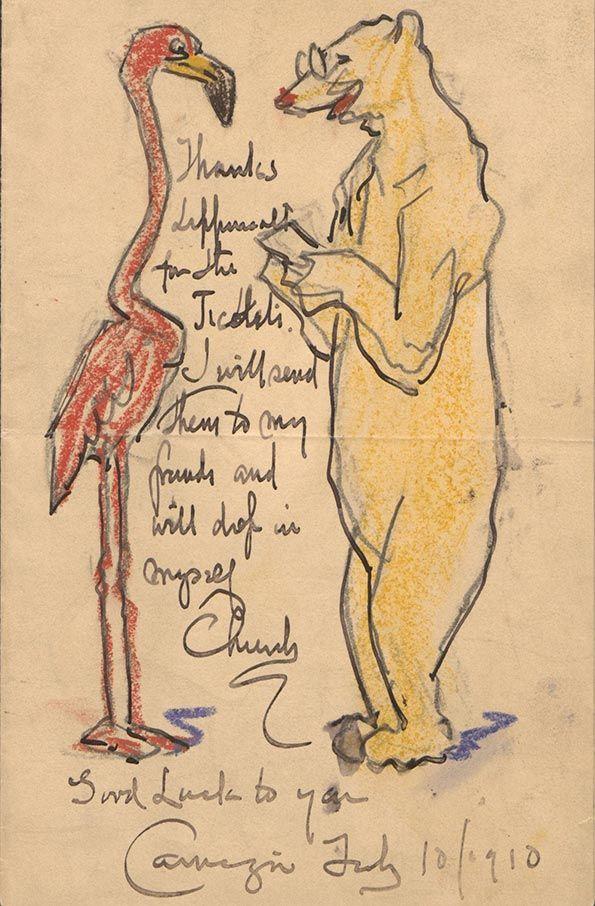 Thanks
Lippincott
for the
Tickets.
I will send
them to my
friends and
will drop in
myself
Church
Good Luck to you
Carnegie Feby 10/1910